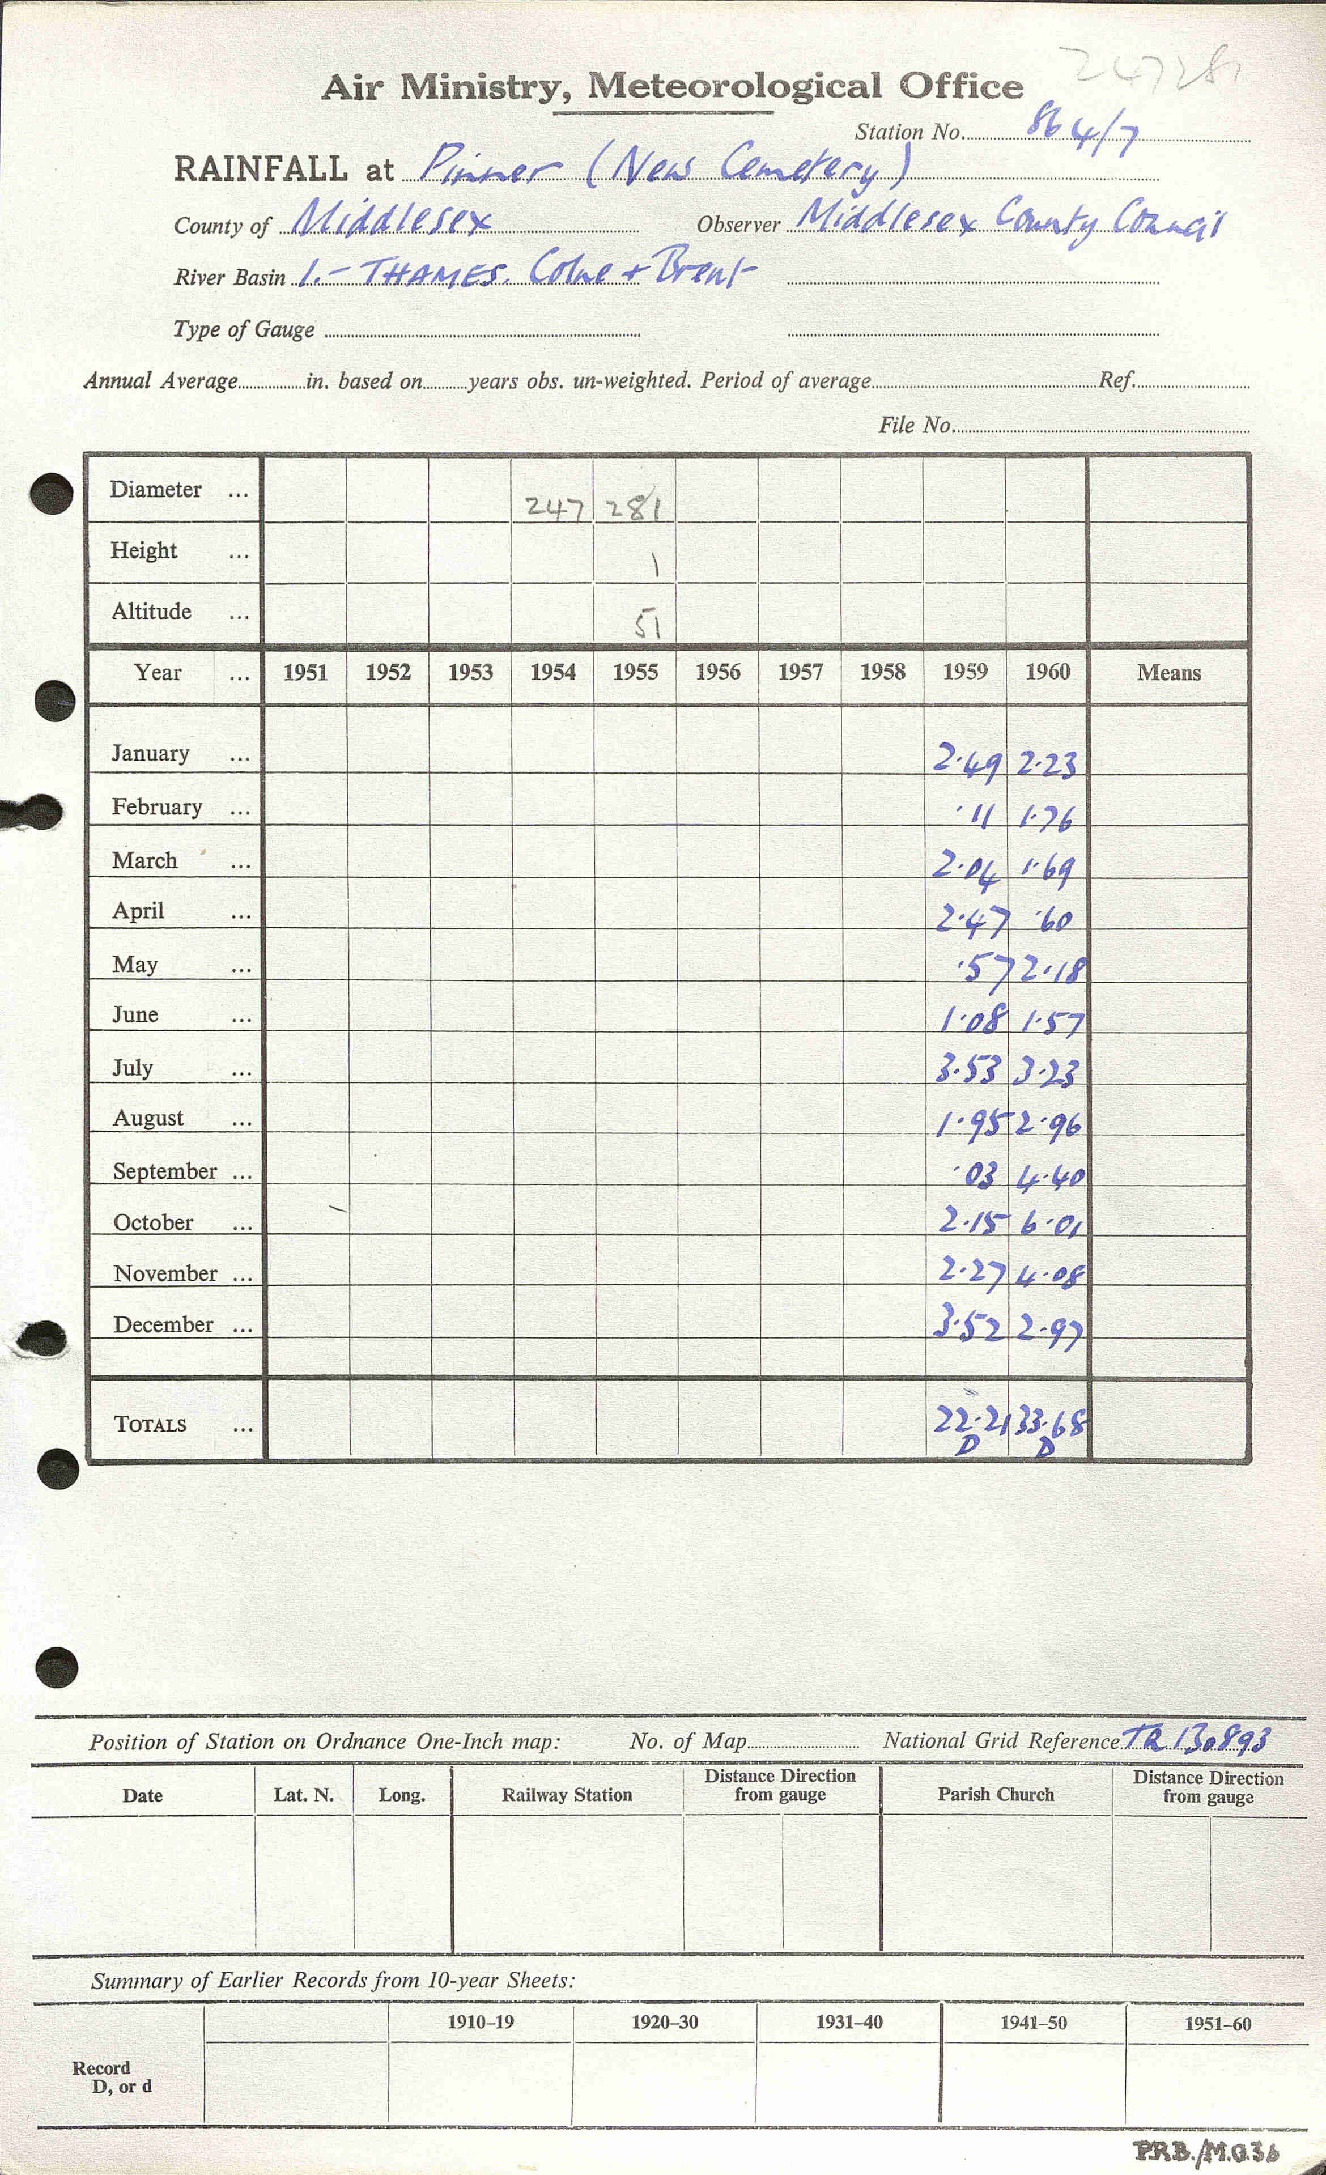 247281
Air Ministry, Meteorological Office
Station No. 864/7
RAINFALL at Pinner (New Cemetery)
County of Middlesex Observer Middlesex County Council
River Basin 1.- THAMES. Colne + Brent
Type of Gauge
Annual Average in. based on years obs. un-weighted. Period of average Ref.
File No.
Diameter ... 247 281
Height ... 1
Altitude ... 51
Year ... 1951 1952 1953 1954 1955 1956 1957 1958 1959 1960 Means
January ... 2.49 2.23
February ... .11 1.76
March ... 2.04 1.69
April ... 2.47 .60
May ... .57 2.18
June ... 1.08 1.57
July ... 3.53 3.23
August ... 1.95 2.96
September ... .03 4.40
October ... 2.15 6.01
November ... 2.27 4.08
December ... 3.52 2.97
TOTALS ... 22.21 33.68
D D
Position of Station on Ordnance One-Inch map: No. of Map National Grid Reference TQ 130893
Date Lat. N. Long. Railway Station Distance Direction from gauge Parish Church Distance Direction from gauge
Summary of Earlier Records from 10-year Sheets:
1910–19 1920–30 1931–40 1941–50 1951–60
Record
D, or d
P.R.B./M.O.36